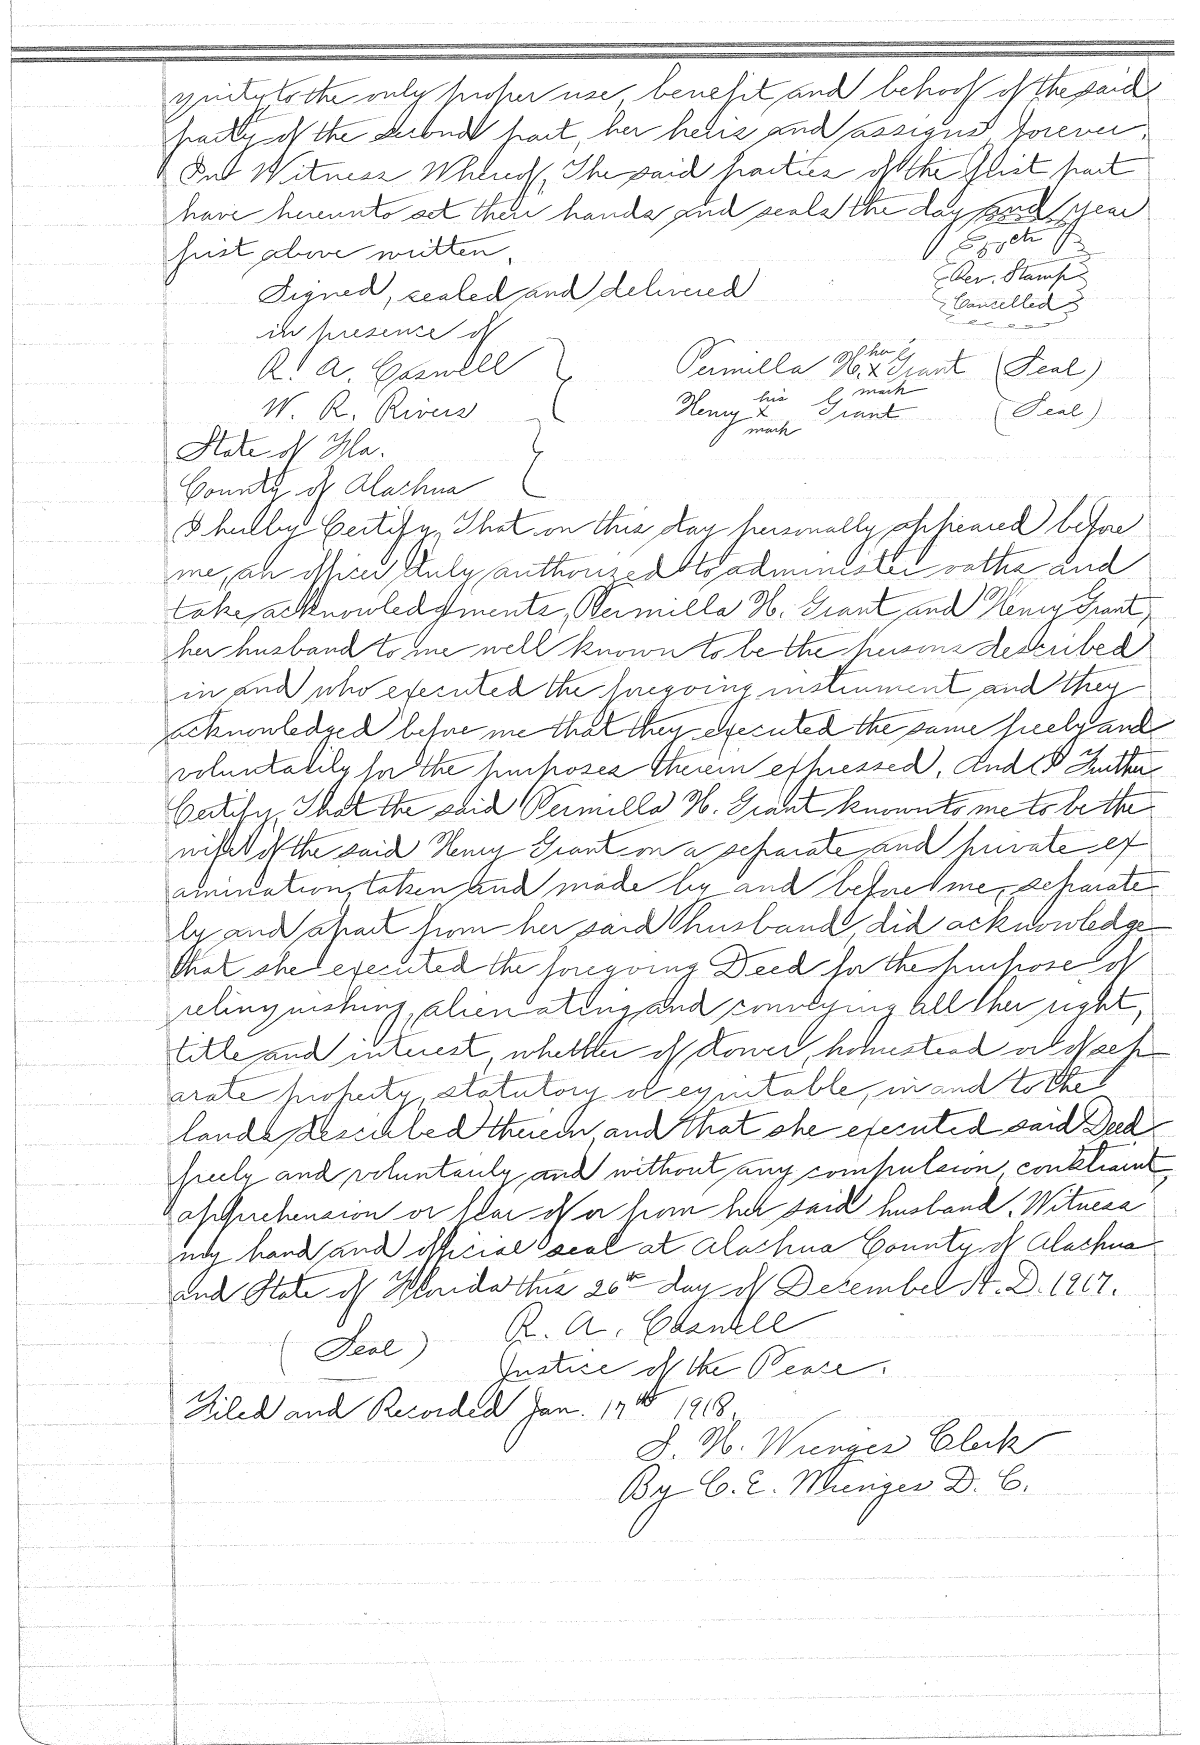 quity to the only proper use, benefit and behoof of the said
party of the second part, her heirs and assigns, forever.
In Witness Whereof, The said parties of the first part
have hereunto set their hands and seals the day and year
first above written.
cts
Rev. Stamps
Cancelled
Signed, sealed and delivered
in presence of
R. A. Caswell
W. R. Rivers
her
Permilla H. x Grant (Seal)
mark
his
Henry x Grant (Seal)
mark
State of Fla.
County of Alachua
I hereby Certify, That on this day personally appeared before
me, an officer duly authorized to administer oaths and
take acknowledgments, Permilla H. Grant and Henry Grant,
her husband to me well known to be the persons described
in and who executed the foregoing instrument and they
acknowledged before me that they executed the same freely and
voluntarily for the purposes therein expressed. And I Further
Certify, That the said Permilla H. Grant known to me to be the
wife of the said Henry Grant on a separate and private ex
amination, taken and made by and before me, separate
ly and apart from her said husband, did acknowledge
that she executed the foregoing Deed for the purpose of
relinquishing, alienating and conveying all her right,
title and interest, whether of dower, homestead or of sep
arate property, statutory or equitable, in and to the
lands described therein, and that she executed said Deed
freely and voluntarily and without any compulsion, constraint,
apprehension or fear of or from her said husband. Witness
my hand and official seal at Alachua County of Alachua
and State of Florida this 26th day of December A. D. 1917.
(Seal) R. A. Caswell
Justice of the Peace.
Filed and Recorded Jan. 17th 1918.
S. H. Wienges Clerk
By C. E. Wienges D. C.